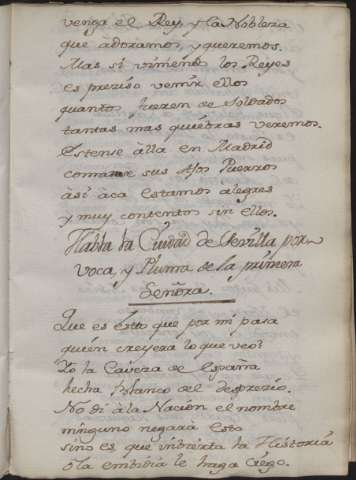 venga el Rey, y la Nobleza
que àdoramos, y queremos.
Mas si viniendo los Reyes
es preziso venir ellos
quantos fueren de Soldados
tantas mas quiebras veremos.
Estense àlla en Madrid
con sus Puerros
àsi àca estamos àlegres
y muy contentos sin ellos.
Habla la Ciudad de Sevilla por
voca, y Pluma de la primera
Señora.
Que es èsto que por mi pasa
quièn creyera lo que veo?
Yo la Caveza de España
hecha Blanco del desprezio.
No di à la Naciòn el nombre
ninguno negarà esto
sino es que invierta la Historia
ò la embidia le haga Ciego.